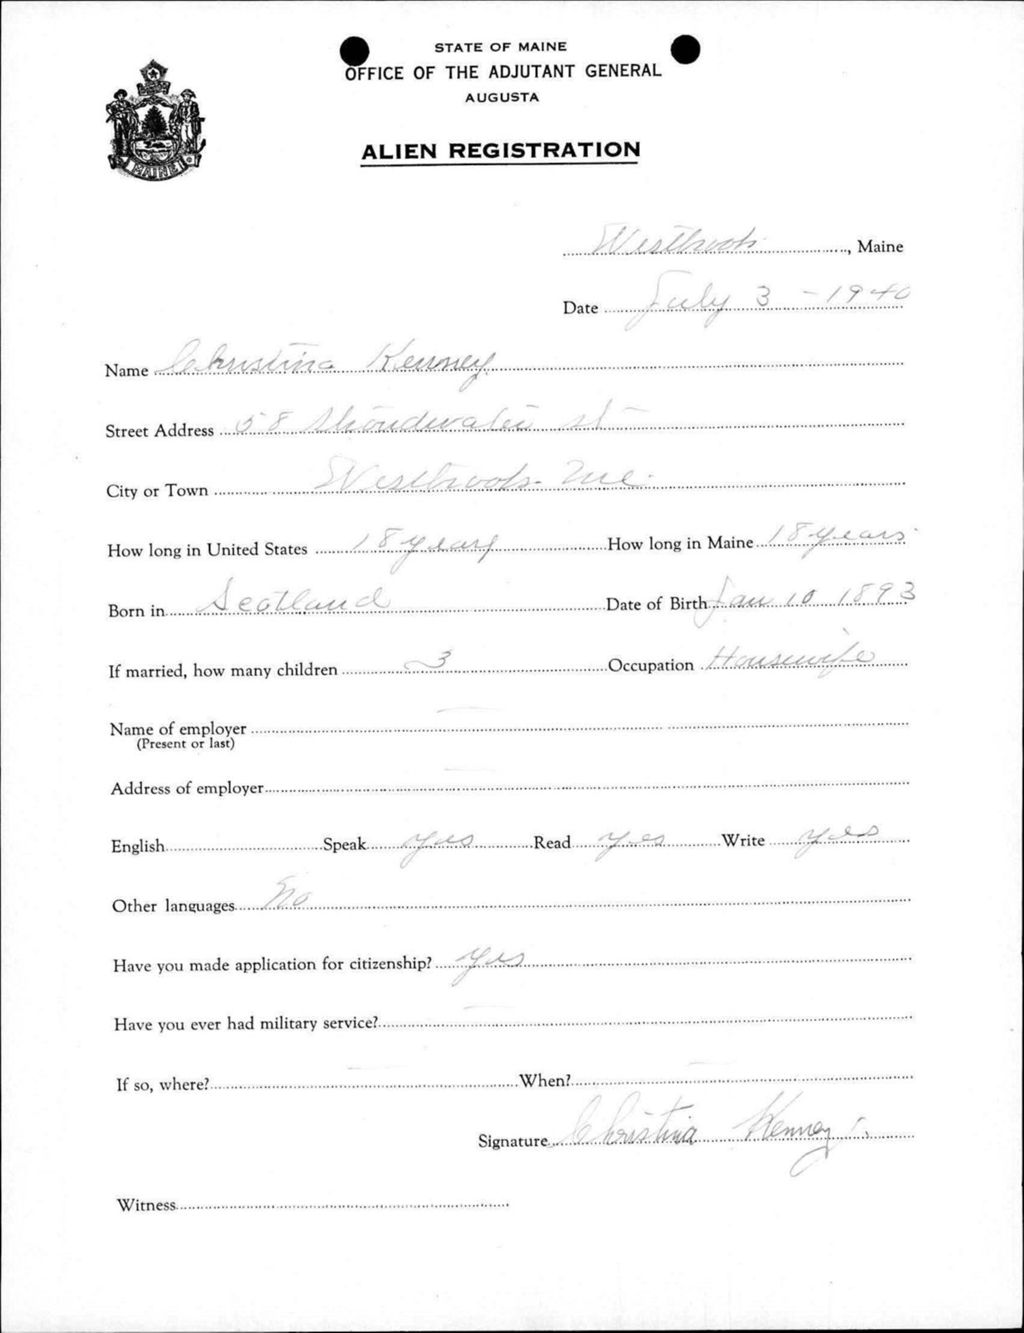 STATE OF MAINE
OFFICE OF THE ADJUTANT GENERAL
AUGUSTA
ALIEN REGISTRATION
MAINE
Westbrook, Maine
Date July 3 - 1940
Name Christina Kenney
Street Address 58 St
City or Town Westbrook - Me.
How long in United States 18 years How long in Maine 18 years
Born in Scotland Date of Birth Jan 10 1893
If married, how many children 3 Occupation Housewife
Name of employer —
(Present or last)
Address of employer —
English Speak yes Read yes Write yes
Other languages No
Have you made application for citizenship? yes
Have you ever had military service? —
If so, where? — When? —
Signature Christina Kenney
Witness